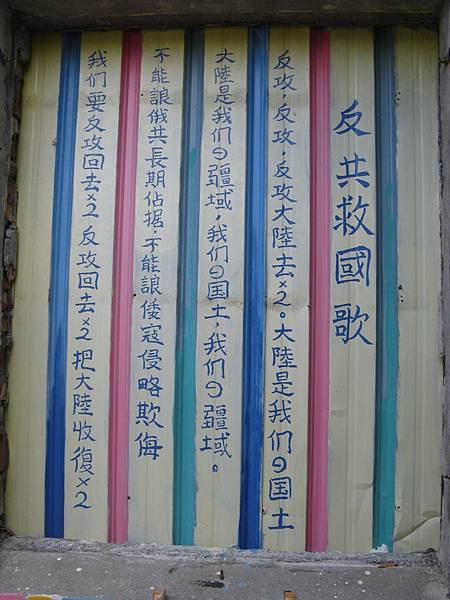 反共救國歌
反攻，反攻，反攻大陸去×2。大陸是我们の国土
大陸是我们の疆域，我们の国土，我们の疆域。
不能讓俄共長期佔据，不能讓倭寇侵略欺侮
我们要反攻回去×2 反攻回去×2 把大陸收復×2